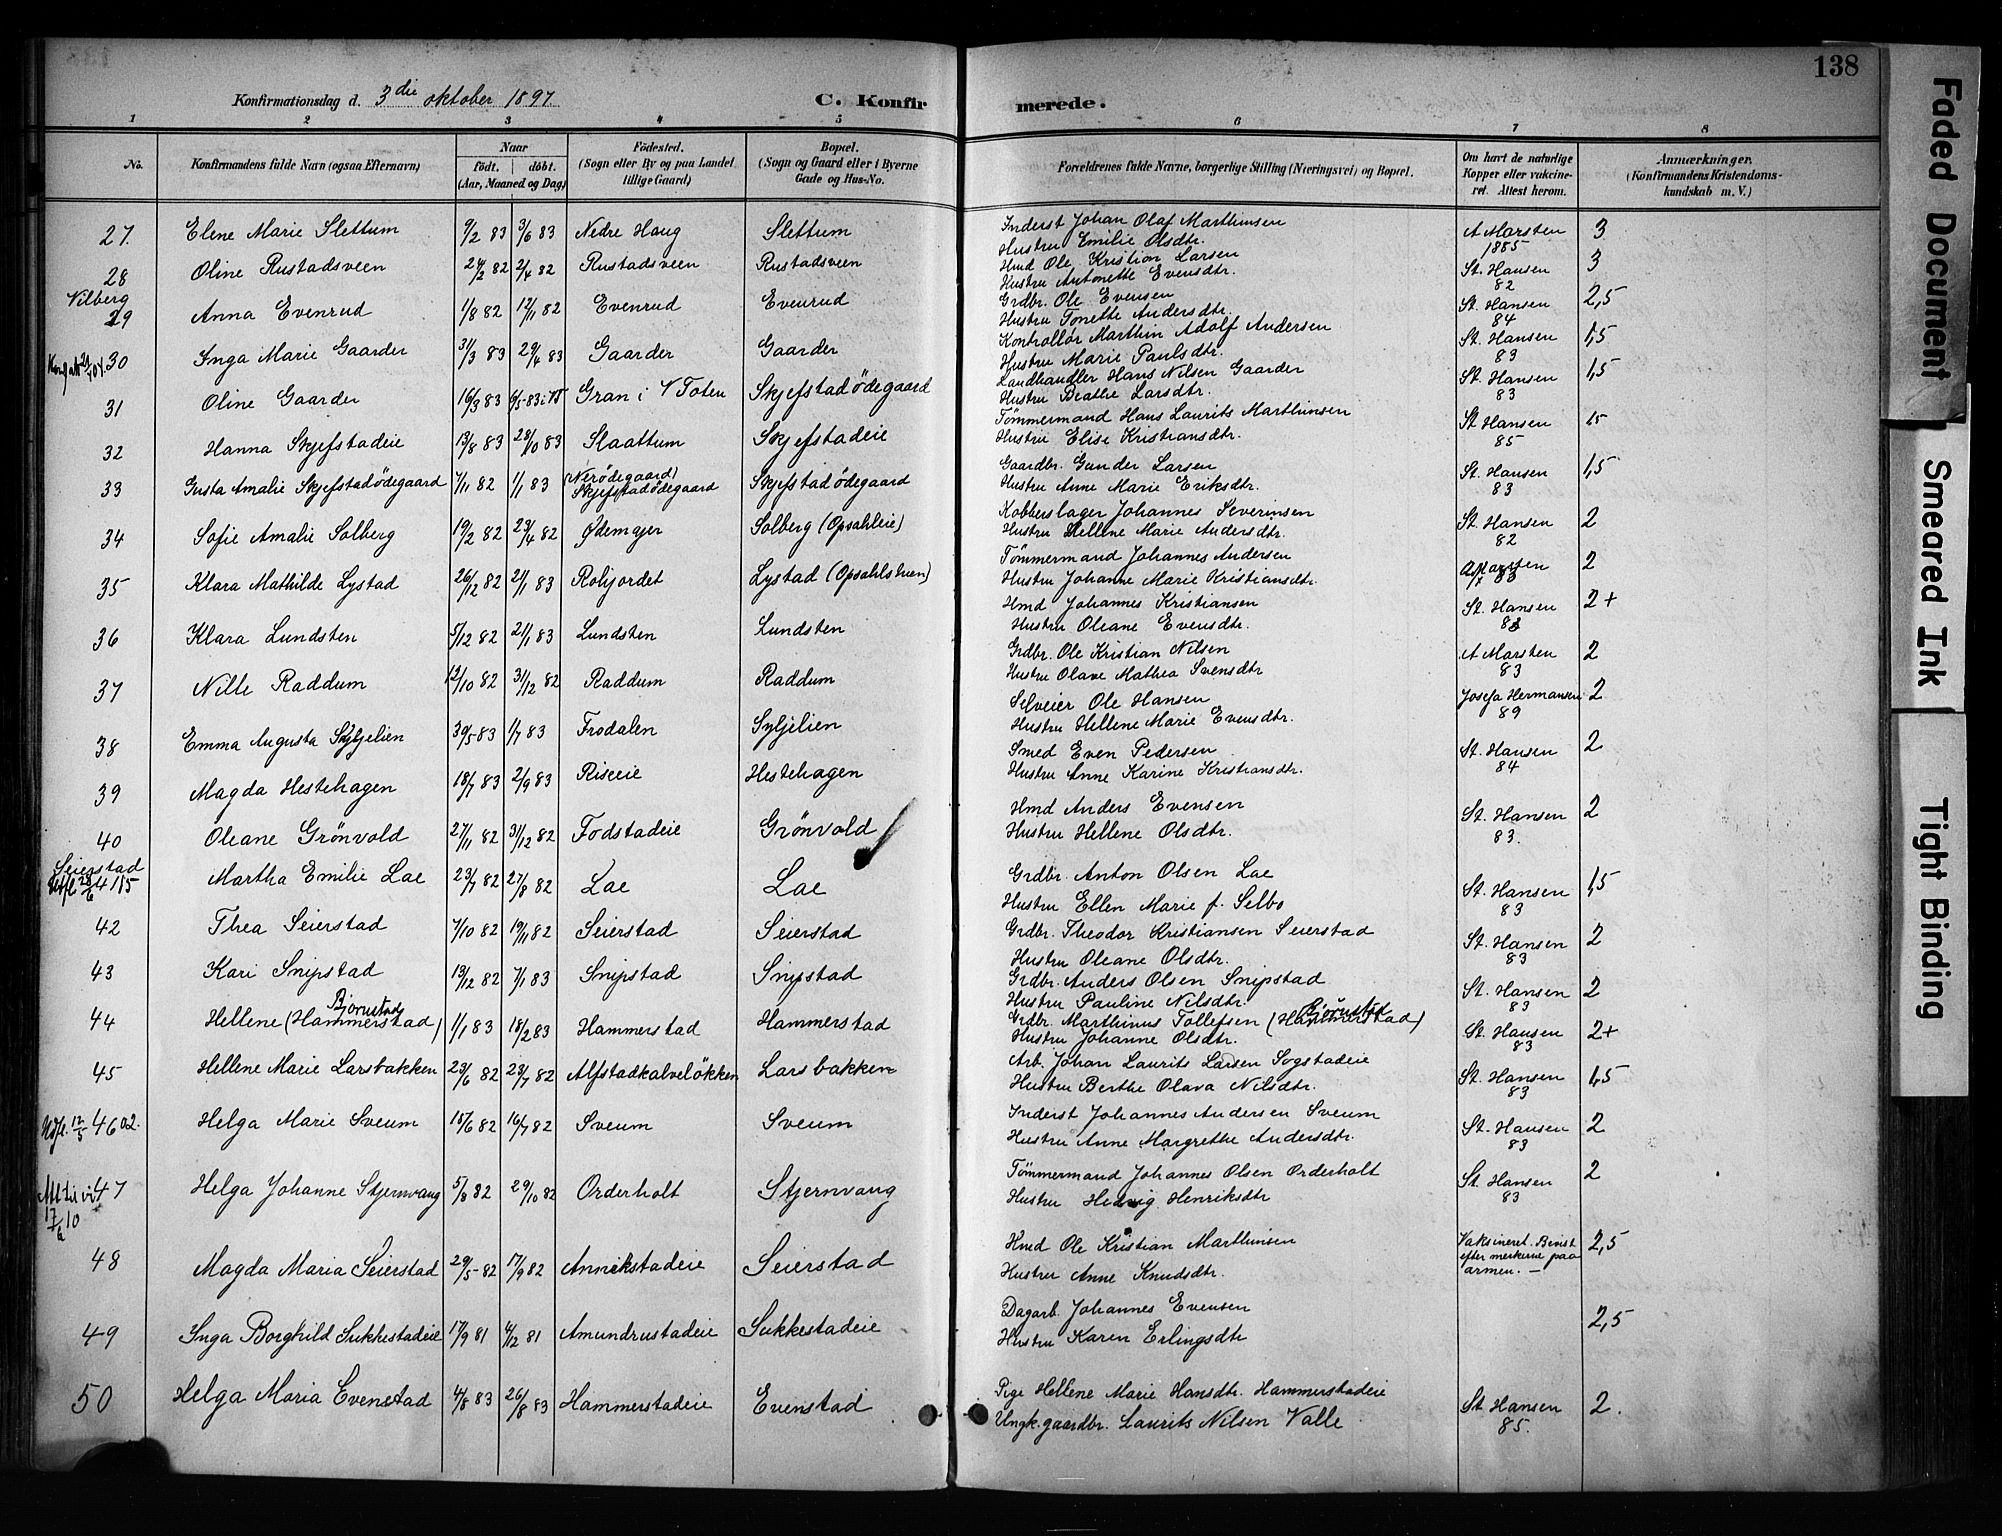 138
Konfirmationsdag d. 3die oktober 1897 C. Konfirmerede.
1 2 3 4 5 6 7 8
No. Konfirmandens fulde Navn (ogsaa Efternavn) Naar født. døbt. (Aar, Maaned og Dag) Fødested. (Sogn eller By og paa Landet tillige Gaard) Bopæl. (Sogn og Gaard eller i Byerne Gade og Hus-No. Forældrenes fulde Navne, borgerlige Stilling (Næringsvei) og Bopæl. Om havt de naturlige Kopper eller vakcineret. Attest herom. Anmærkninger. (Konfirmandens Kristendomskundskab m. V.)
27. Elene Marie Slettum 9/2 83 3/6 83 Nedre Haug Slettum Inderst Johan Olaf Marthinsen A Marsten 3
Hustru Emilie Olsdtr. 1885
28 Oline Rustadsveen 24/2 82 2/4 82 Rustadsveen Rustadsveen Hmd Ole Kristian Larsen St. Hansen 3
Hustru Antonette Evensdtr. 82
Vilberg
29 Anna Evenrud 1/8 82 12/11 82 Evenrud Evenrud Grdbr. Ole Evensen St. Hansen 2,5
Hustru Tonette Andersdtr. 84
30 Inga Marie Gaarder 31/3 83 29/4 83 Gaarder Gaarder Kontrollør Marthin Adolf Andersen St. Hansen 1,5
Hustru Marie Paulsdtr. 83
31 Oline Gaarder 16/3 83 6/5 83 i VT Gran i V Toten Skjefstadødegaard Landhandler Hans Nilsen Gaarder St. Hansen 1,5
Hustru Beathe Larsdtr. 83
32 Hanna Skjefstadeie 13/8 83 28/10 83 Slaattum Skjefstadeie Tømmermand Hans Laurits Marthinsen St Hansen 1,5
Hustru Elise Kristiansdtr. 85
33 Gusta Amalie Skjefstadødegaard 7/11 82 1/1 83 (Nerødegaard) Skjefstadødegaard Skjefstadødegaard Gaardbr. Gunder Larsen St. Hansen 1,5
Hustru Anne Marie Eriksdtr. 83
34 Sofie Amalie Solberg 19/2 82 23/4 82 Ødemyer Solberg (Opsahleie) Kobberslager Johannes Severinsen St. Hansen 2
Hustru Hellene Marie Andersdtr. 82
35 Klara Mathilde Lystad 26/12 82 2/1 83 Rohjordet Lystad (Opsahlstuen) Tømmermand Johannes Andersen A Marsten 2
Hustru Johanne Marie Kristiansdtr. 83
36 Klara Lundsten 5/12 82 21/1 83 Lundsten Lundsten Hmd Johannes Kristiansen St. Hansen 2+
Hustru Oleane Evensdtr. 83
37 Nille Raddum 12/10 82 31/12 82 Raddum Raddum Grdbr. Ole Kristian Nilsen A Marsten 2
Hustru Olave Mathea Svensdtr 83
38 Emma Augusta Syljelien 30/5 83 1/7 83 Frodalen Syljelien Selveier Ole Hansen Josefa Hermansen 2
Hustru Hellene Marie Evensdtr. 89
39 Magda Hestehagen 18/7 83 2/9 83 Riseeie Hestehagen Smed Even Pedersen St. Hansen 2
Hustru Anne Karine Kristiansdtr. 84
40 Oleane Grönvold 27/11 82 31/12 82 Fodstadeie Grønvold Hmd Anders Evensen St. Hansen 2
Hustru Hellene Olsdtr. 83.
Seierstad
41 Martha Emilie Lae 23/7 82 27/8 82 Lae Lae Grdbr. Anton Olsen Lae St. Hansen 1,5
Hustru Ellen Marie f. Selbo 83
42 Thea Seierstad 7/10 82 19/11 82 Seierstad Seierstad Grdbr. Theodor Kristiansen Seierstad St. Hansen 2
Hustru Oleane Olsdtr. 83
43 Kari Snipstad 13/12 82 7/1 83 Snipstad Snipstad Grdbr. Anders Olsen Snipstad St. Hansen 2
Hustru Pauline Nilsdtr. 83
Bjørnstad Bjørnstad
44 Hellene (Hammerstad) 1/1 83 18/2 83 Hammerstad Hammerstad Grdbr. Marthinus Tollefsen (Hammerstad) St. Hansen 2+
Hustru Johanne Olsdtr. 83
45 Hellene Marie Larsbakken 23/6 82 23/7 82 Alfstadkalveløkken Larsbakken Arb. Johan Laurits Larsen Sogstadeie St. Hansen 1,5
Hustru Berthe Olava Nilsdtr. 83
Utfl. 12/5 02.
46 Helga Marie Sveum 15/6 82 16/7 82 Sveum Sveum Inderst Johannes Andersen Sveum St. Hansen 2
Hustru Anne Margrethe Andersdtr. 83
47 Helga Johanne Stjernvang 5/8 82 29/10 82 Orderholt Stjernvang Tømmermand Johannes Olsen Orderholt St. Hansen 2
17/6 10 Hustru Hedvig Henriksdtr 83
48 Magda Maria Seierstad 29/5 82 17/9 82 Annekstadeie Seierstad Hmd Ole Kristian Marthinsen Vaksineret. Bevist efter merkerne paa armen. — 2,5
Hustru Anne Knudsdtr.
49 Inga Borghild Sukkestadeie 17/9 81 4/12 81 Amundrustadeie Sukkestadeie Dagarb. Johannes Evensen 2,5
Hustru Karen Erlingsdtr
50 Helga Maria Evenstad 4/8 83 26/8 83 Hammerstadeie Evenstad Pige Hellene Marie Hansdtr. Hammerstadeie St Hansen 2.
Ungk. gaardbr. Laurits Nilsen Valle 85.
Faded Document
Smeared Ink
Tight Binding